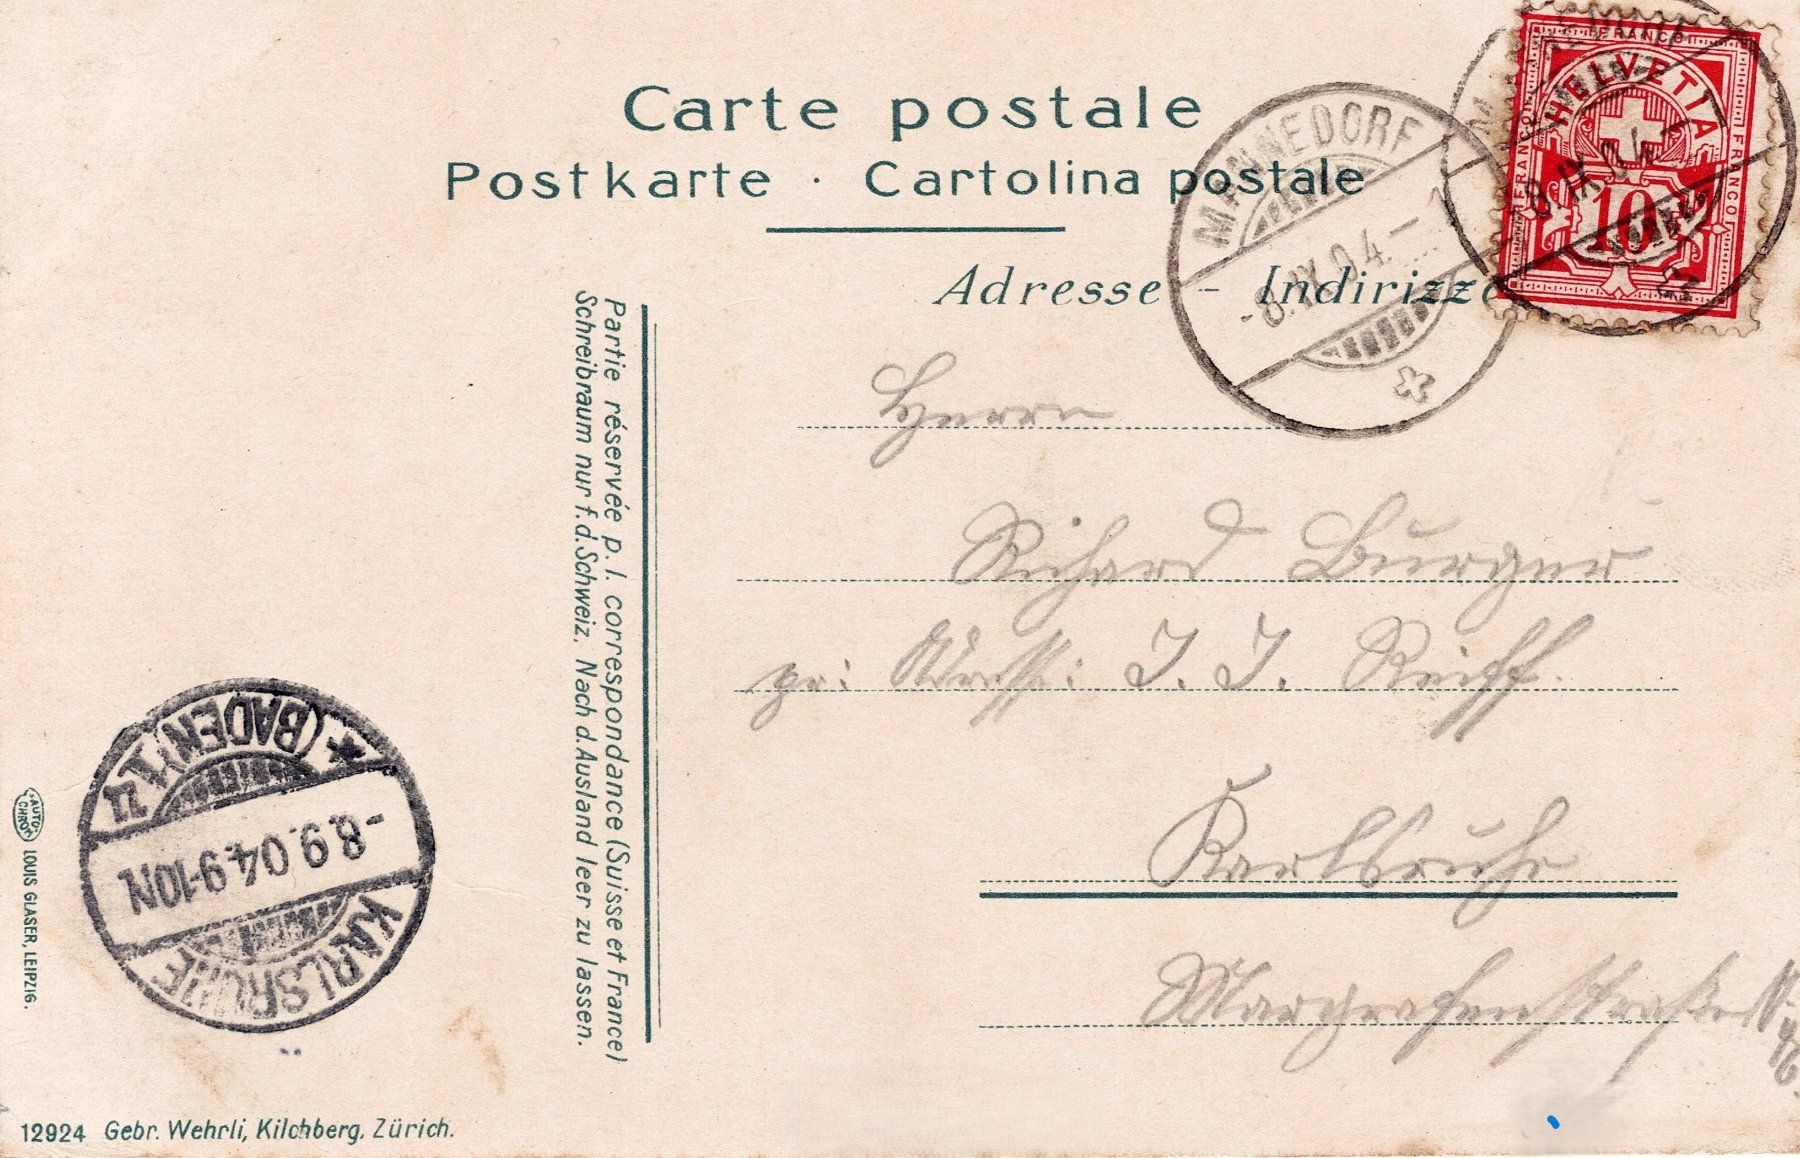 Carte postale
Postkarte · Cartolina postale
Adresse - Indirizzo
FRANCO
HELVETIA
FRANCO
FRANCO
10
8.IX.04.-
MÄNNEDORF
-8.IX.04.-1
Partie réservée p. l. correspondance (Suisse et France)
Schreibraum nur f. d. Schweiz. Nach d. Ausland leer zu lassen.
Herrn
Richard Burger
pr: Adresse: J. J. Reiff.
Karlsruhe
Margrafenstraße
KARLSRUHE
-8.9.04.9-10N
(BADEN) 1.
AUTO-
CHROM
LOUIS GLASER, LEIPZIG.
12924 Gebr. Wehrli, Kilchberg, Zürich.